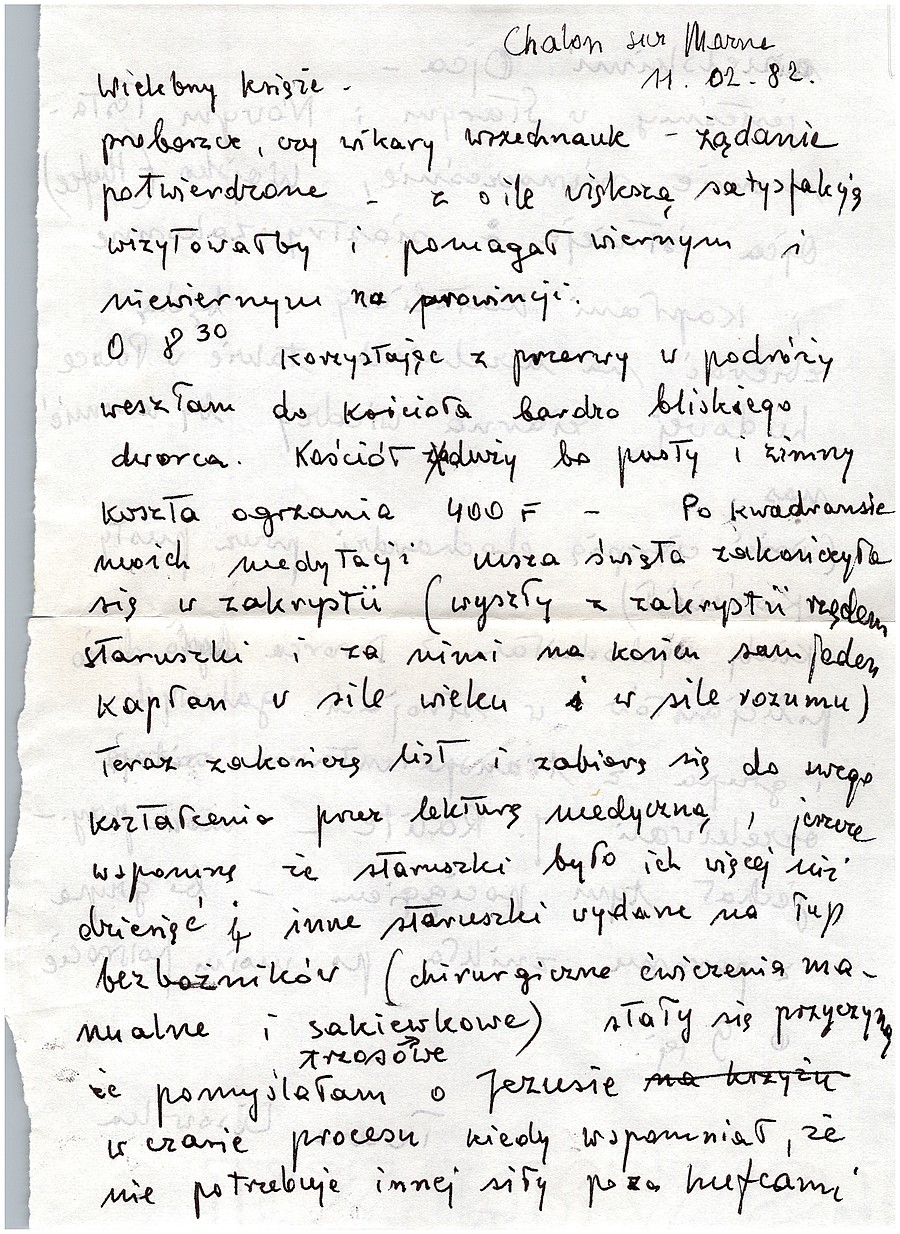 Chalon sur Marne
11. 02. 82.
Wielebny księże -
proboszcz, czy wikary wrzechnauk - żądanie
potwierdzone - z o ile większą satysfakcją
wizytowałby i pomagał wiernym i
niewiernym na prowincji.
O 8 30 Korzystając z przerwy w podróży
weszłam do Kościoła bardzo bliskiego
dworca. Kościół duży bo pusty i zimny
koszta ogrzania 400 F - Po kwadransie
moich medytacji msza święta zakończyła
się w zakrystii (wyszły z zakrystii rzędem
staruszki i za nimi na końcu sam jeden
Kapłan w sile wieku i w sile rozumu)
Teraz zakończę list i zabiorę się do swego
kształcenia przez lekturę medyczną, jeszcze
wspomnę że staruszki było ich więcej niż
dziesięć i inne staruszki wydane na łup
bezbożników (chirurgiczne ćwiczenia ma-
nualne i sakiewkowe) stały się przyczyną
trzosowe
że pomyślałam o Jezusie na krzyżu
w czasie procesu kiedy wspomniał, że
nie potrzebuje innej siły poza hufcami